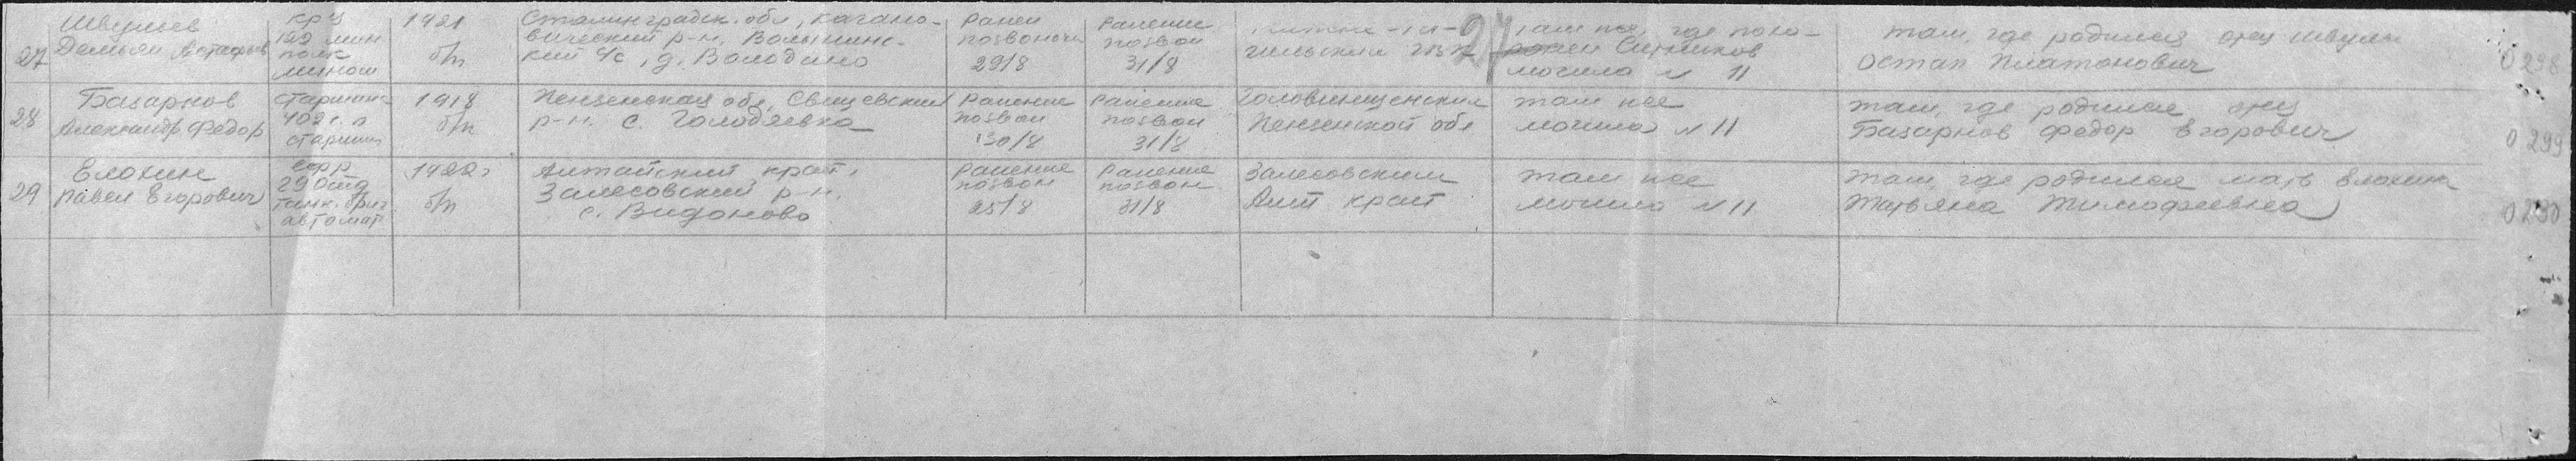 27
Демьян Астафьев
кр-ц
122 мин
полк
1921
б/п
Сталинградск. обл, кагано-
вический р-н,
с/с, д. Володино
Ранен
позвоноч
29/8
Ранение
позвон
31/8
24
там же, где похо-
ронен Ситников
могила № 11
там, где родился отец
Остап Платонович
0 298
28
Базарнов
Александр Федор
старшина
402 с. п
старшин
1918
б/п
Пензенская обл, Свищевский
р-н. с. Голодяевка
Ранение
позвон
30/8
Ранение
позвон
31/8
Головинщенским
Пензенской обл
там же
могила № 11
там, где родился отец
Базарнов Федор Егорович
0 299
29
Елохин
Павел Егорович
ефр
29 отд
танк. бриг
автомат
1922 г
б/п
Алтайский край,
Залесовский р-н.
с. Видоново
Ранение
позвон
25/8
Ранение
позвон
31/8
Залесовским
Алт край
там же
могила № 11
там, где родился мать Елохина
Татьяна Тимофеевна